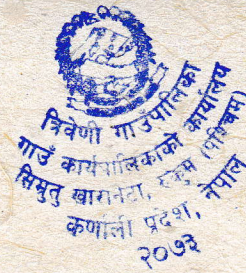 त्रिवेणी गाउँपालिका
गाउँ कार्यपालिकाको कार्यालय
सिम्रुतु खारानेटा, रुकुम (पश्चिम)
कर्णाली प्रदेश, नेपाल
२०७३